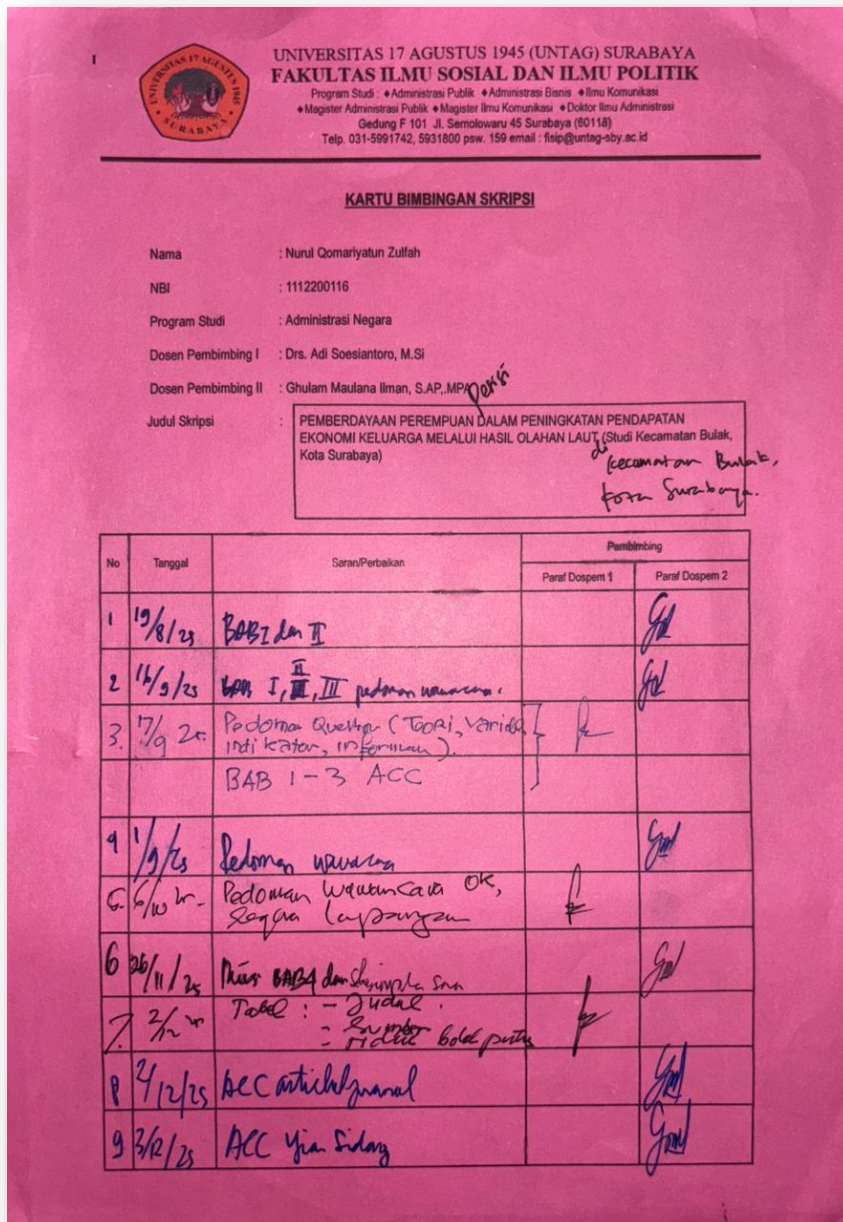 I
UNIVERSITAS 17 AGUSTUS 1945
SURABAYA
UNIVERSITAS 17 AGUSTUS 1945 (UNTAG) SURABAYA
FAKULTAS ILMU SOSIAL DAN ILMU POLITIK
Program Studi : ♦Administrasi Publik ♦Administrasi Bisnis ♦Ilmu Komunikasi
♦Magister Administrasi Publik ♦Magister Ilmu Komunikasi ♦Doktor Ilmu Administrasi
Gedung F 101 Jl. Semolowaru 45 Surabaya (60118)
Telp. 031-5991742, 5931800 psw. 159 email : fisip@untag-sby.ac.id
KARTU BIMBINGAN SKRIPSI
Nama : Nurul Qomariyatun Zulfah
NBI : 1112200116
Program Studi : Administrasi Negara
Dosen Pembimbing I : Drs. Adi Soesiantoro, M.Si
Dosen Pembimbing II : Ghulam Maulana Ilman, S.AP,.MPA
Judul Skripsi : PEMBERDAYAAN PEREMPUAN DALAM PENINGKATAN PENDAPATAN
EKONOMI KELUARGA MELALUI HASIL OLAHAN LAUT (Studi Kecamatan Bulak,
Kota Surabaya)
di Kecamatan Bulak,
Kota Surabaya.
No Tanggal Saran/Perbaikan Pembimbing
Paraf Dospem 1 Paraf Dospem 2
1 19/8/25 BAB I dan II
2 16/9/25 BAB I, II, III pedoman wawancara.
3. 17/9 25. Pedoman (Teori, Variabel,
indikator, informan).
BAB 1-3 ACC
4 1/9/25 Pedoman wawancara
5. 6/10 Pedoman Wawancara OK,
Segera lapangan
6 26/11/25 BAB4 dan
7. 2/12 Tabel : - Judul.
- Sumber
-
8 2/12/25 ACC
9 3/12/25 ACC Ujian Sidang